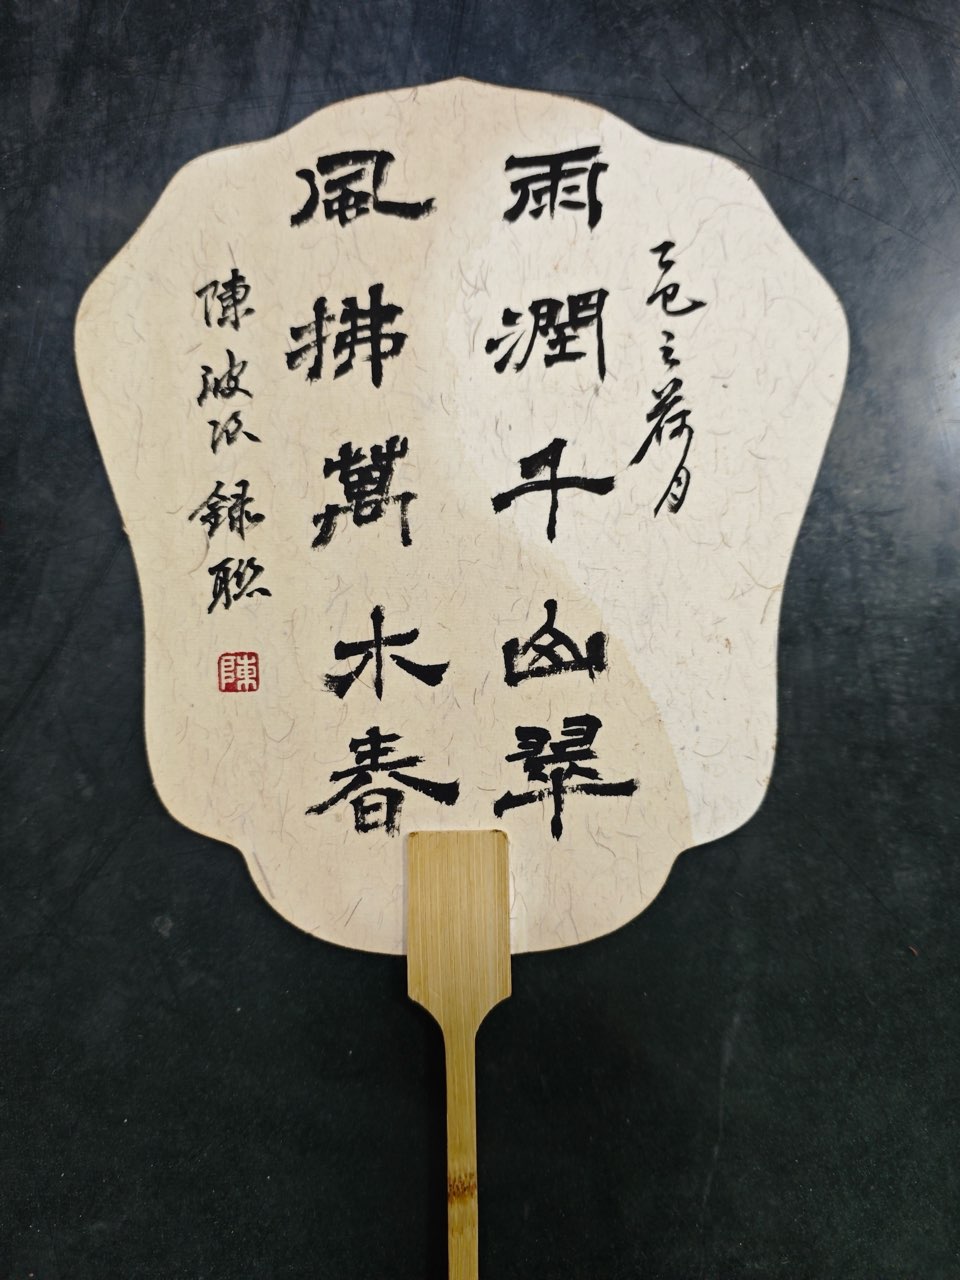 乙巳之荷月
雨潤千山翠
風拂萬木春
陳波録聯
陳